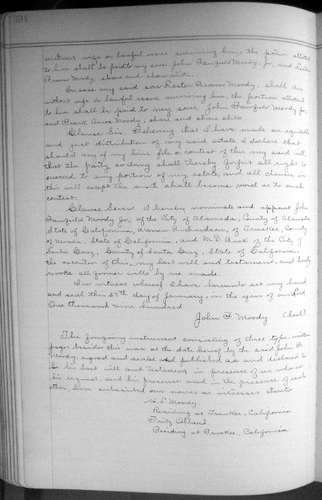 without wife or lawful issue surviving him, the portion allotted
to him shall be paid to my sons John Banfield Moody Jr. and Lester
Bacon Moody, share and share alike.
In case my said son Lester Bacon Moody, shall die
without wife or lawful issue surviving him, the portion allotted
to him shall be paid to my sons, John Banfield Moody Jr.
and Frank Amos Moody, share and share alike
Clause Six. Believing that I have made an equitable
and just distribution of my said estate I declare that
should any of my heirs file a contest of this my said will,
that the party so doing shall thereby forfeit all right to
succeed to any portion of my estate, and all clauses in
this will except the sixth shall become void as to such
contest.
Clause Seven I hereby nominate and appoint John
Banfield Moody Jr., of the City of Alameda, County of Alameda,
State of California, Warren Richardson, of Truckee, County
of Nevada, State of California, and W.D. of the City of
Santa Cruz, County of Santa Cruz, State of California,
the executors of this, my last will and testament, and hereby
revoke all former wills by me made.
In witness whereof I have hereunto set my hand
and seal this day of January, in the year of our Lord
One thousand nine hundred.
John F. Moody (Seal)
The foregoing instrument consisting of three type written
pages besides this was at the date hereof by the said John F.
Moody, signed and sealed and published as and declared to
be his last will and Testament in presence of us who at
his request, and his presence and in the presence of each
other, have subscribed our names as witnesses thereto
Moody
Residing at Truckee, California
Residing at Truckee, California